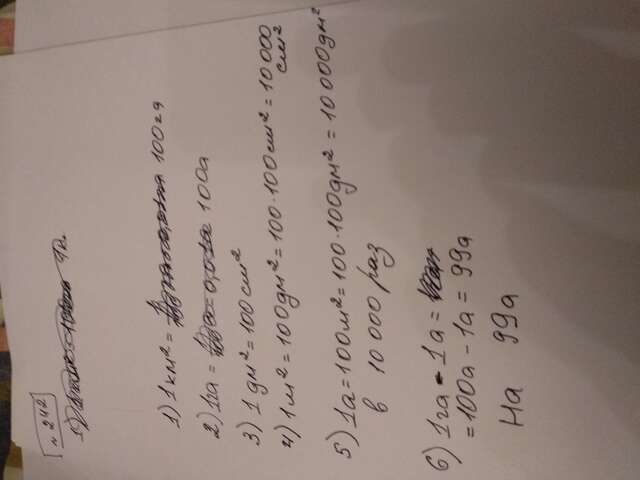 № 242
1) 1 км² = 100 га
2) 1га = 100а
3) 1 дм² = 100 см²
4) 1 м² = 100дм² = 100·100 см² = 10 000
см²
5) 1а = 100м² = 100·100дм² = 10 000дм²
в 10 000 раз
6) 1га - 1а =
= 100а - 1а = 99а
На 99а